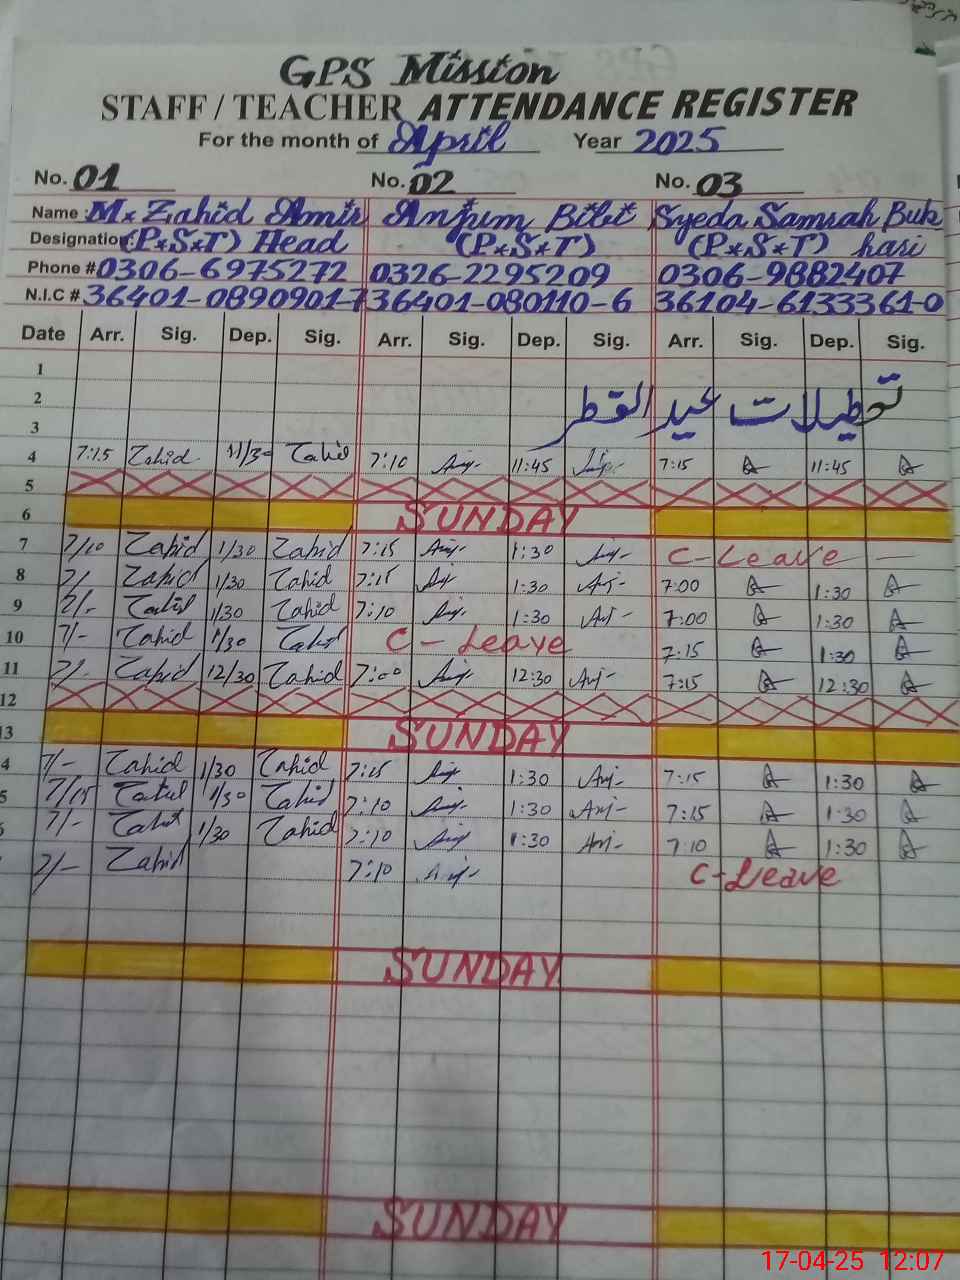 GPS Mission
STAFF / TEACHER ATTENDANCE REGISTER
For the month of April Year 2025
No. 01 No. 02 No. 03
Name M* Zahid Amir Anjum Bibi Syeda Samrah Buk
Designation: (P*S*T) Head (P*S*T) (P*S*T) hari
Phone # 0306-6975272 0326-2295209 0306-9882407
N.I.C # 36401-0890901-7 36401-080110-6 36104-6133361-0
Date Arr. Sig. Dep. Sig. Arr. Sig. Dep. Sig. Arr. Sig. Dep. Sig.
1
2 تعطیلات عید الفطر
3
4 7:15 Zahid 11/30 Zahid 7:10 11:45 7:15 11:45
5
6 SUNDAY
7 7/10 Zahid 1/30 Zahid 7:15 1:30 C-Leave
8 7/- Zahid 1/30 Zahid 7:15 1:30 7:00 1:30
9 7/- Zahid 1/30 Zahid 7:10 1:30 7:00 1:30
10 7/- Zahid 1/30 Zahid C-Leave 7:15 1:30
11 7/- Zahid 12/30 Zahid 7:00 12:30 7:15 12:30
12
13 SUNDAY
4 7/- Zahid 1/30 Zahid 7:15 1:30 7:15 1:30
5 7/15 Zahid 1/30 Zahid 7:10 1:30 7:15 1:30
7/- Zahid 1/30 Zahid 7:10 1:30 7:10 1:30
7/- Zahid 7:10 C-Leave
SUNDAY
SUNDAY
17-04-25 12:07